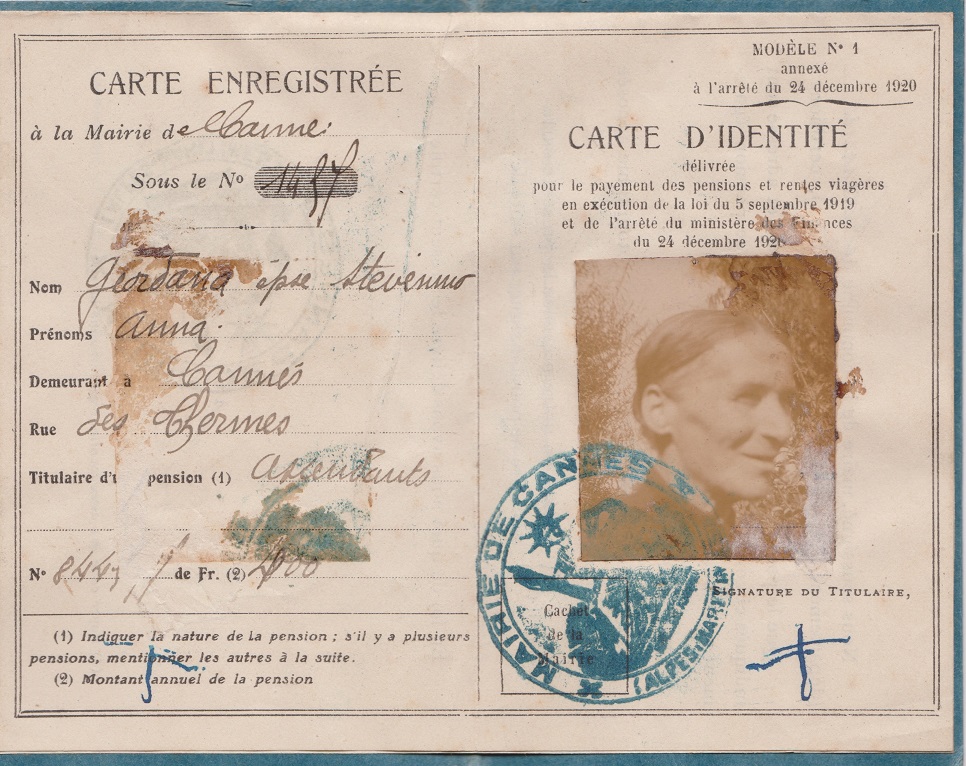 CARTE ENREGISTRÉE
à la Mairie de Cannes
Sous le No 1457
Nom Giordana épse Stevenino
Prénoms Anna
Demeurant à Cannes
Rue des Thermes
Titulaire d'u pension (1) ascendants
No de Fr. (2)
(1) Indiquer la nature de la pension ; s'il y a plusieurs
pensions, mentionner les autres à la suite.
(2) Montant annuel de la pension
MODÈLE No 1
annexé
à l'arrêté du 24 décembre 1920
CARTE D'IDENTITÉ
délivrée
pour le payement des pensions et rentes viagères
en exécution de la loi du 5 septembre 1919
et de l'arrêté du ministère des Finances
du 24 décembre 1920
MAIRIE DE CANNES
(ALPES MARITIMES
Cachet
de la
Mairie
SIGNATURE DU TITULAIRE,